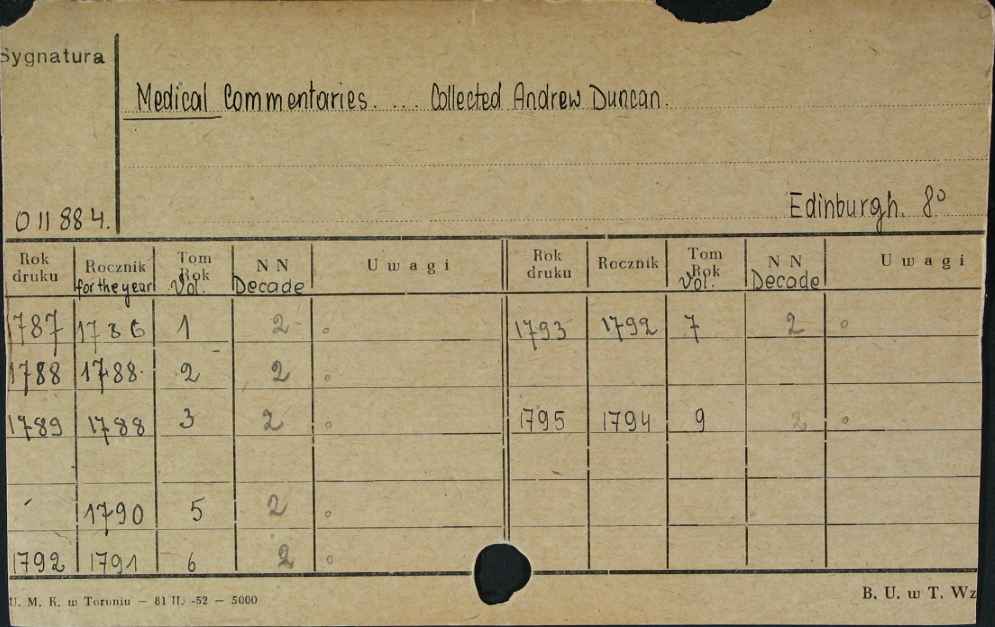 Sygnatura
Medical Commentaries. ... Collected Andrew Duncan.
Edinburgh. 8°
011884.
Rok druku Rocznik for the year Tom Rok Vol. NN Decade Uwagi Rok druku Rocznik Tom Rok Vol. NN Decade Uwagi
1787 1786 1 2 1793 1792 7 2
1788 1788 2 2
1789 1788 3 2 1795 1794 9 2
1790 5 2
1792 1791 6 2
U. M. K. w Toruniu — 81 II. -52 — 5000 B. U. w T. Wz